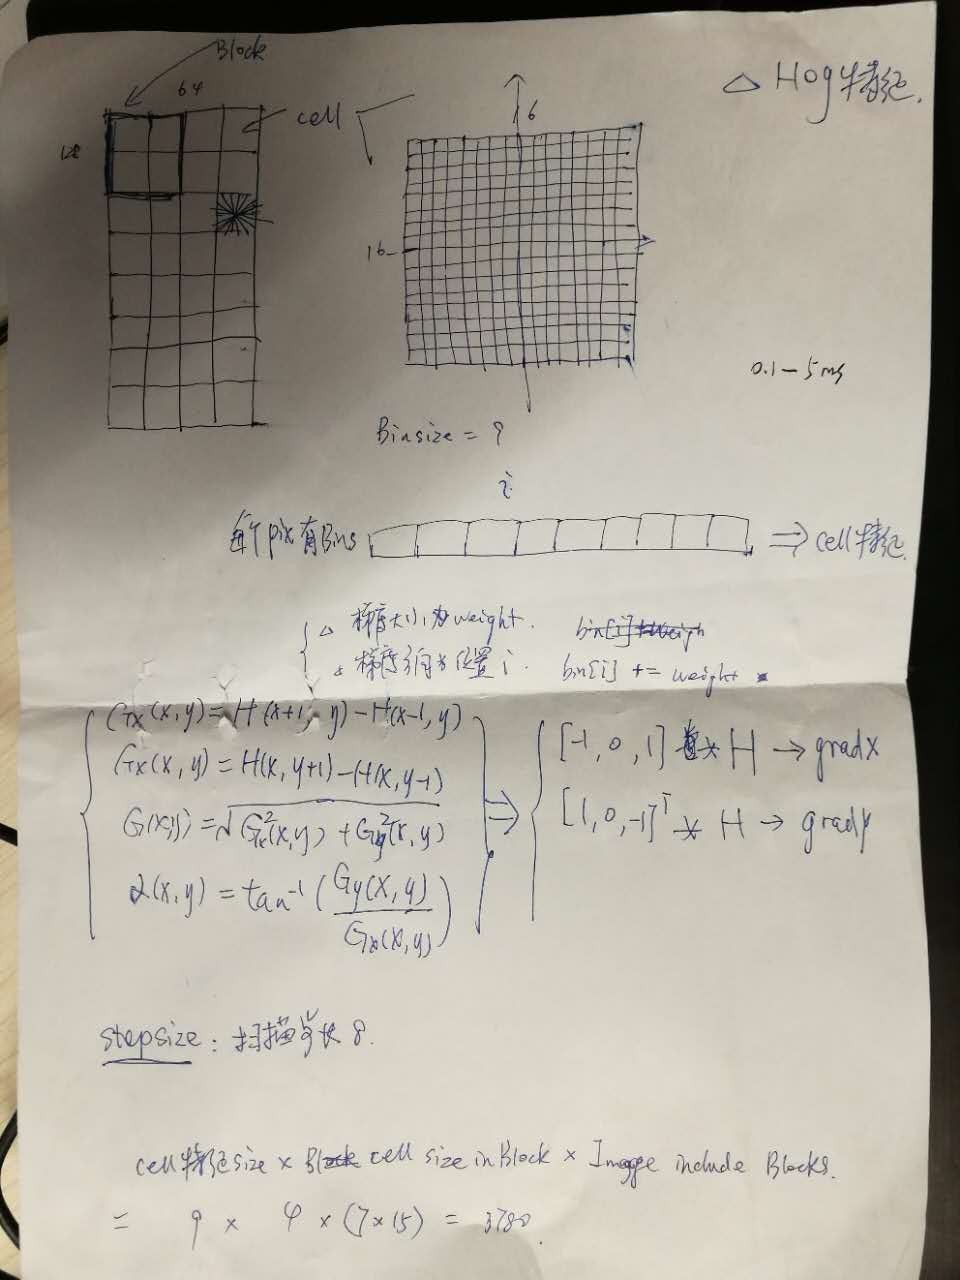 Block
64
△ Hog特征.
cell
16
128
16
0.1 — 5 ms
Binsize = 9
i
每个pix有Bins ⇒ cell特征.
△ 梯度大小为weight.
△ 梯度方向为位置i. bin[i] += weight
Gx(x,y) = H(x+1, y) - H(x-1, y)
Gx(x,y) = H(x, y+1) - H(x, y-1)
G(x,y) = √Gx²(x,y) + Gy²(x,y)
α(x,y) = tan⁻¹ ( Gy(x,y) / Gx(x,y) )
⇒
[-1, 0, 1] * H → gradx
[1, 0, -1]ᵀ * H → grady
stepsize: 扫描步长 8.
cell特征size × cell size in Block × Imagge include Blocks.
= 9 × 4 × (7×15) = 3780.